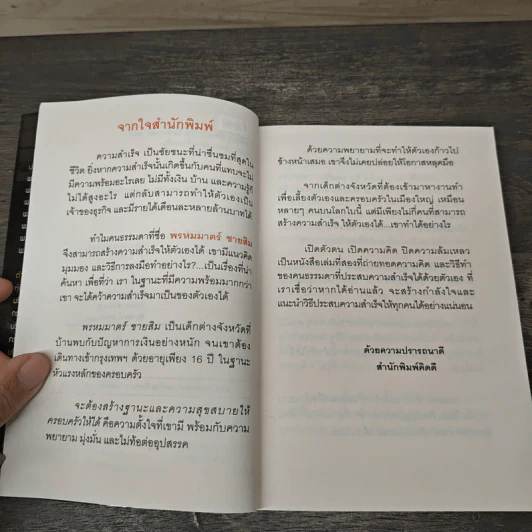 จากใจสำนักพิมพ์
ความสำเร็จ เป็นชัยชนะที่น่าชื่นชมที่สุดใน
ชีวิต ยิ่งหากความสำเร็จนั้นเกิดขึ้นกับคนที่แทบจะไม่
มีความพร้อมอะไรเลย ไม่มีทั้งเงิน บ้าน และความรู้ที่
ไม่ได้สูงอะไร แต่กลับสามารถทำให้ตัวเองเป็น
เจ้าของธุรกิจ และมีรายได้เดือนละหลายล้านบาทได้
ทำไมคนธรรมดาที่ชื่อ พรหมมาตร์ ชายสิม
จึงสามารถสร้างความสำเร็จให้ตัวเองได้ เขามีแนวคิด
มุมมอง และวิธีการลงมือทำอย่างไร?...เป็นเรื่องที่น่า
ค้นหา เพื่อที่ว่า เรา ในฐานะที่มีความพร้อมมากกว่า
เขา จะได้คว้าความสำเร็จมาเป็นของตัวเองได้
พรหมมาตร์ ชายสิม เป็นเด็กต่างจังหวัดที่
บ้านพบกับปัญหาการเงินอย่างหนัก จนเขาต้อง
เดินทางเข้ากรุงเทพฯ ด้วยอายุเพียง 16 ปี ในฐานะ
หัวแรงหลักของครอบครัว
จะต้องสร้างฐานะและความสุขสบายให้
ครอบครัวให้ได้ คือความตั้งใจที่เขามี พร้อมกับความ
พยายาม มุ่งมั่น และไม่ท้อต่ออุปสรรค
ด้วยความพยายามที่จะทำให้ตัวเองก้าวไป
ข้างหน้าเสมอ เขาจึงไม่เคยปล่อยให้โอกาสหลุดมือ
จากเด็กต่างจังหวัดที่ต้องเข้ามาหางานทำ
เพื่อเลี้ยงตัวเองและครอบครัวในเมืองใหญ่ เหมือน
หลายๆ คนบนโลกใบนี้ แต่มีเพียงไม่กี่คนที่สามารถ
สร้างความสำเร็จ ให้กับตัวเองได้...เขาทำได้อย่างไร
เปิดตัวตน เปิดความคิด ปิดความล้มเหลว
เป็นหนังสือเล่มที่สองที่ถ่ายทอดความคิด และวิธีทำ
ของคนธรรมดาที่ประสบความสำเร็จได้ด้วยตัวเอง ที่
เราเชื่อว่าหากได้อ่านแล้ว จะสร้างกำลังใจและ
แนะนำวิธีประสบความสำเร็จให้ทุกคนได้อย่างแน่นอน
ด้วยความปรารถนาดี
สำนักพิมพ์คิดดี